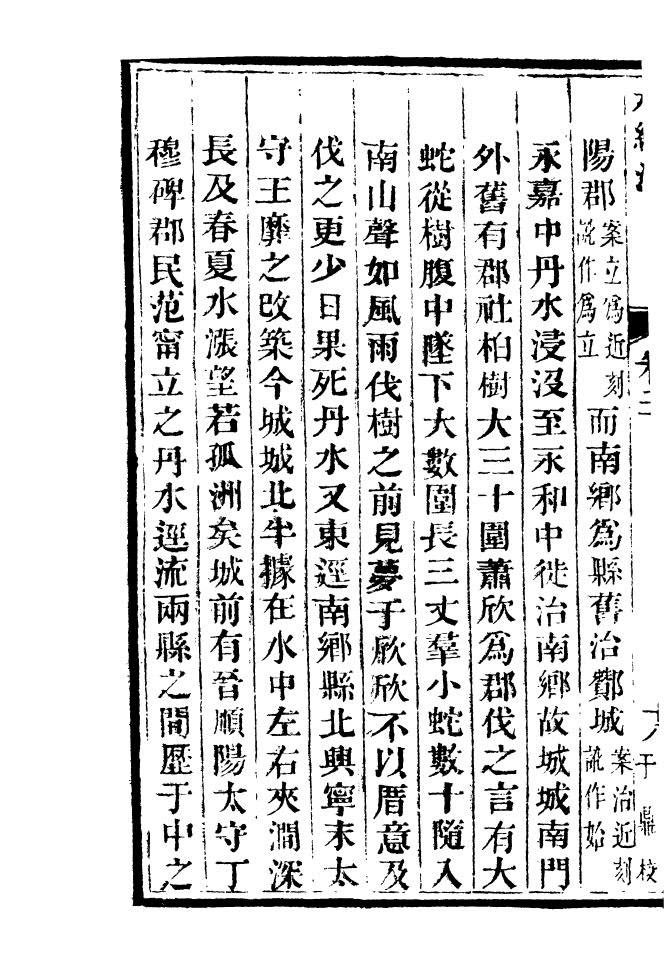 水經注
卷二
十八
于鼎校
陽郡案立爲近刻訛作爲立而南鄉爲縣舊治酇城案治近刻訛作始
永嘉中丹水浸沒至永和中徙治南鄉故城城南門
外舊有郡社柏樹大三十圍蕭欣爲郡伐之言有大
蛇從樹腹中墜下大數圍長三丈羣小蛇數十隨入
南山聲如風雨伐樹之前見夢于欣欣不以厝意及
伐之更少日果死丹水又東逕南鄉縣北興寧末太
守王靡之改築今城城北半據在水中左右夾澗深
長及春夏水漲望若孤洲矣城前有晉順陽太守丁
穆碑郡民范甯立之丹水逕流兩縣之間歷于中之